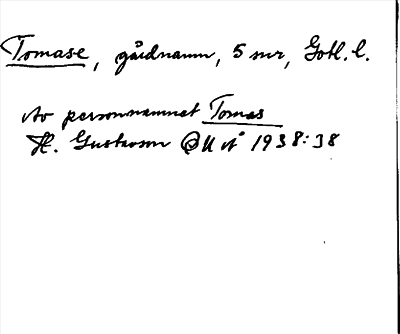 Tomase, gårdnamn, 5 snr, Gotl. l.
Av personnamnet Tomas
H. Gustavson OUÅ 1938:38